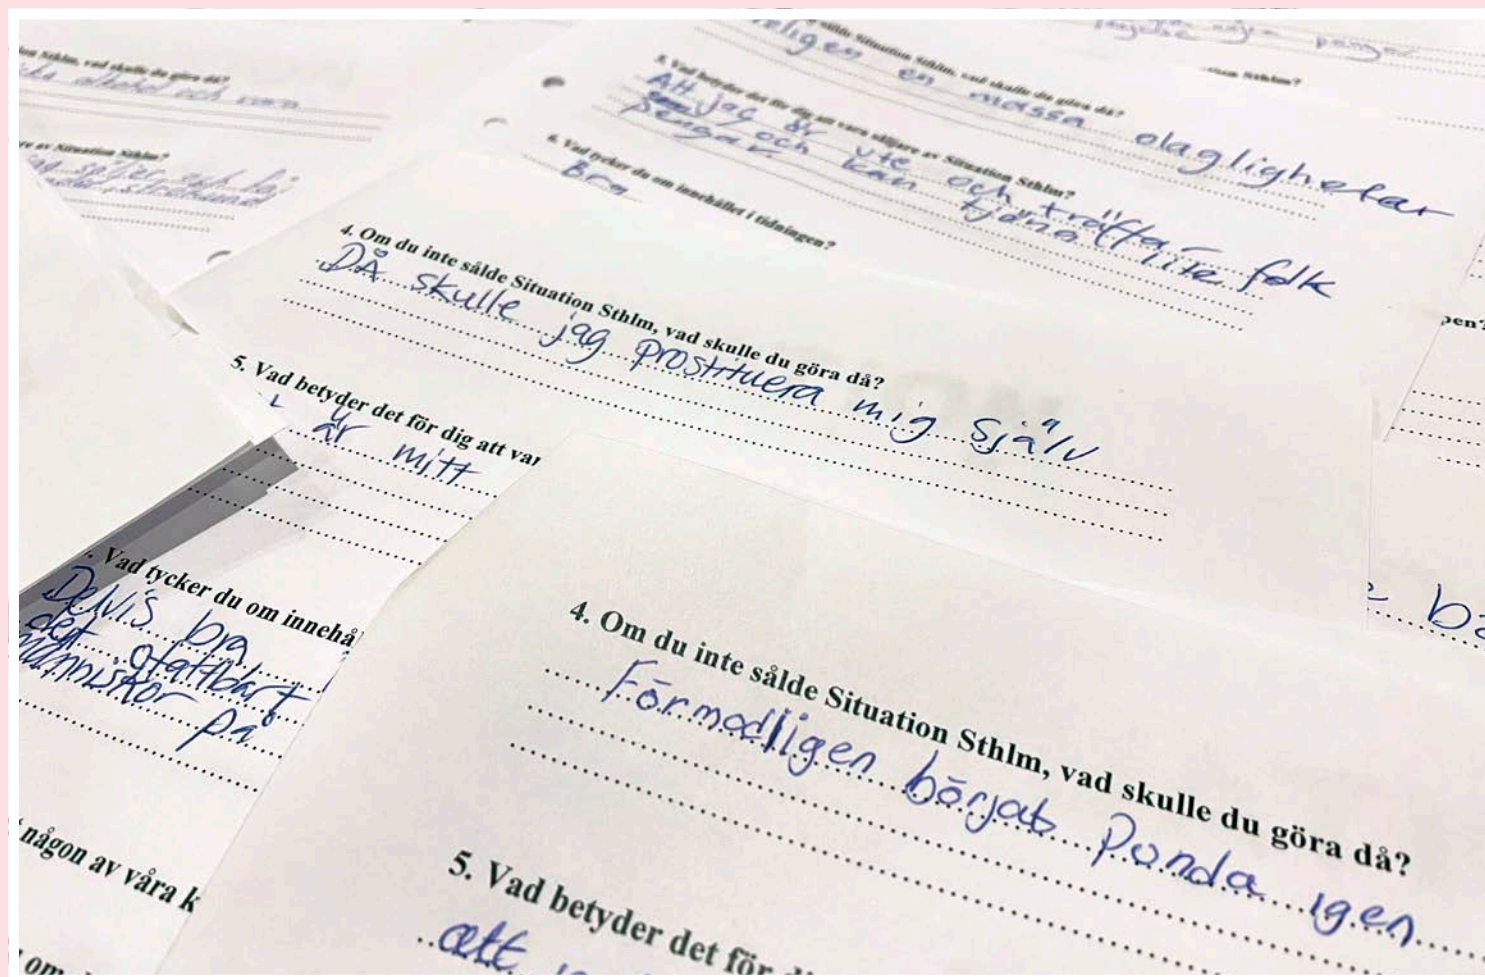 vad skulle du göra då?
alkohol och vara
av Situation Sthlm?
säljer och
pengar
Situation Sthlm, vad skulle du göra då?
en massa olagligheter
5. Vad betyder det för dig att vara säljare av Situation Sthlm?
Att jag är ute och träffa folk
och kan tjäna lite
pengar.
6. Vad tycker du om innehållet i tidningen?
Bra
4. Om du inte sålde Situation Sthlm, vad skulle du göra då?
DÅ skulle jag prostituera mig själv
5. Vad betyder det för dig att var
är mitt
. Vad tycker du om innehå
Delvis bra
det ofattbart
människor på
någon av våra k
om
4. Om du inte sålde Situation Sthlm, vad skulle du göra då?
Förmodligen börjat Punda igen
5. Vad betyder det för di
att